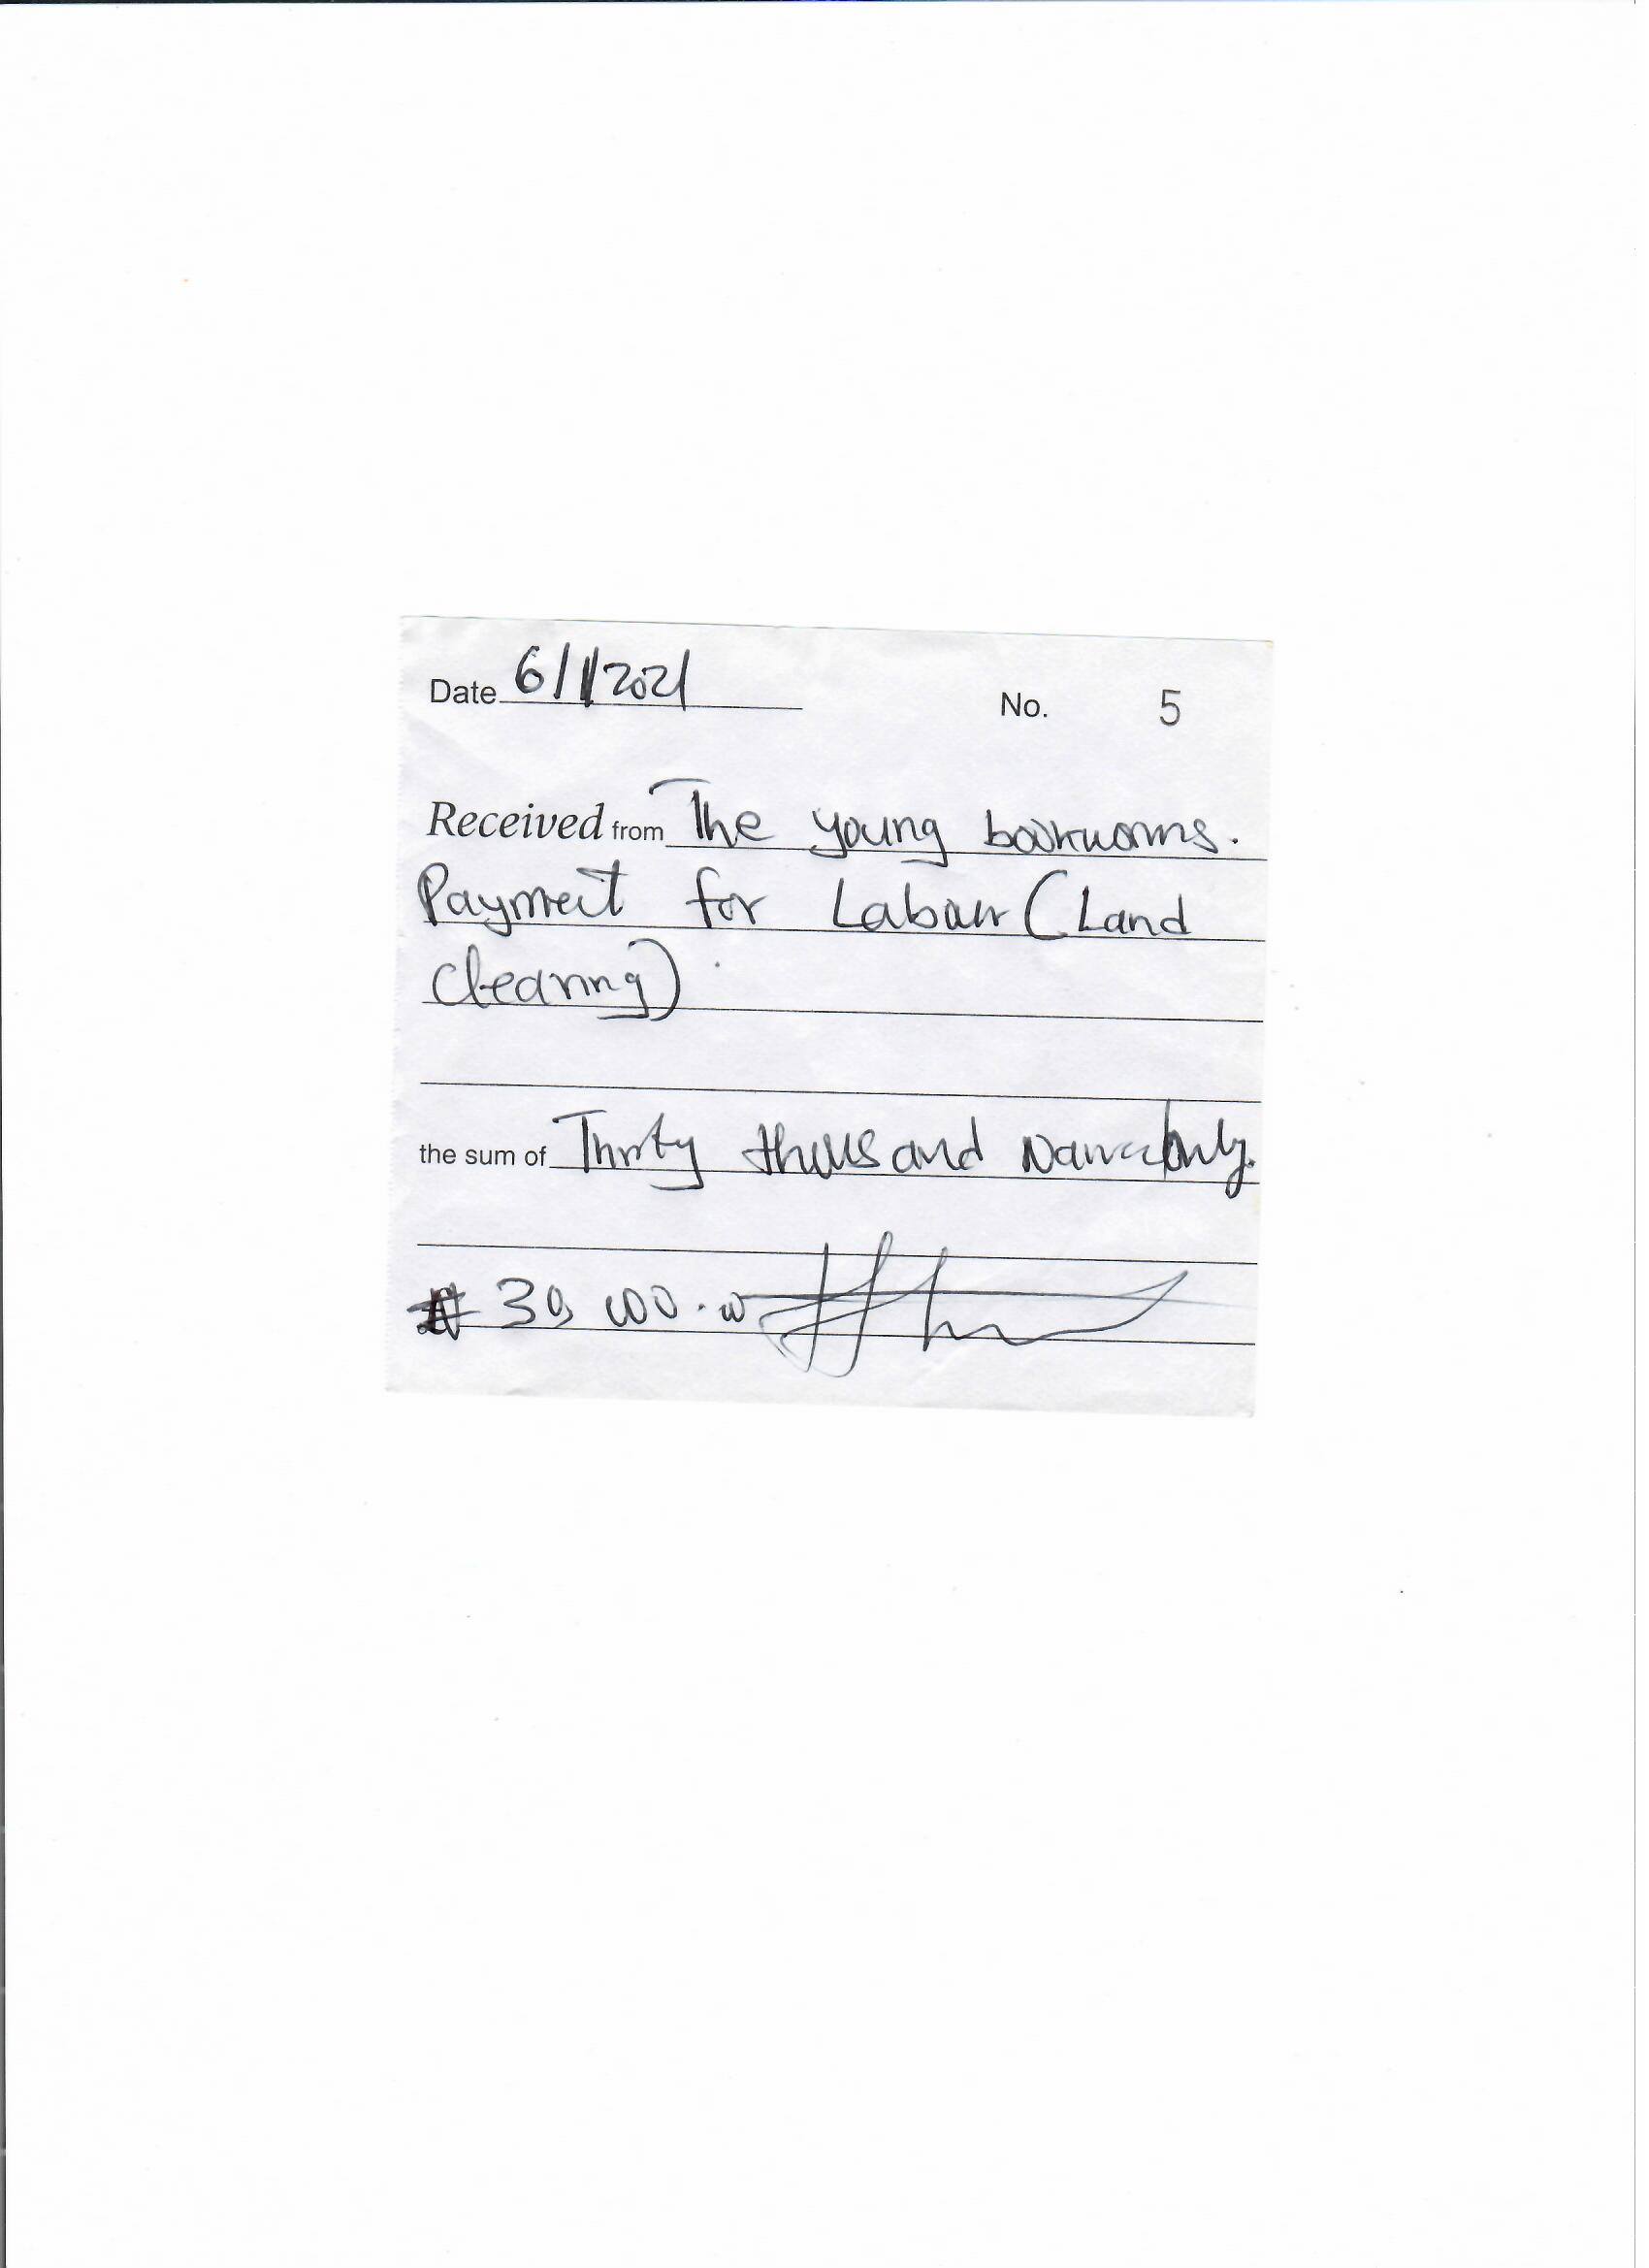 Date 6/1/2021 No. 5
Received from The young bookworms.
Payment for Labour (Land
clearing)
the sum of Thirty thousand Naira only.
₦ 30,000.00